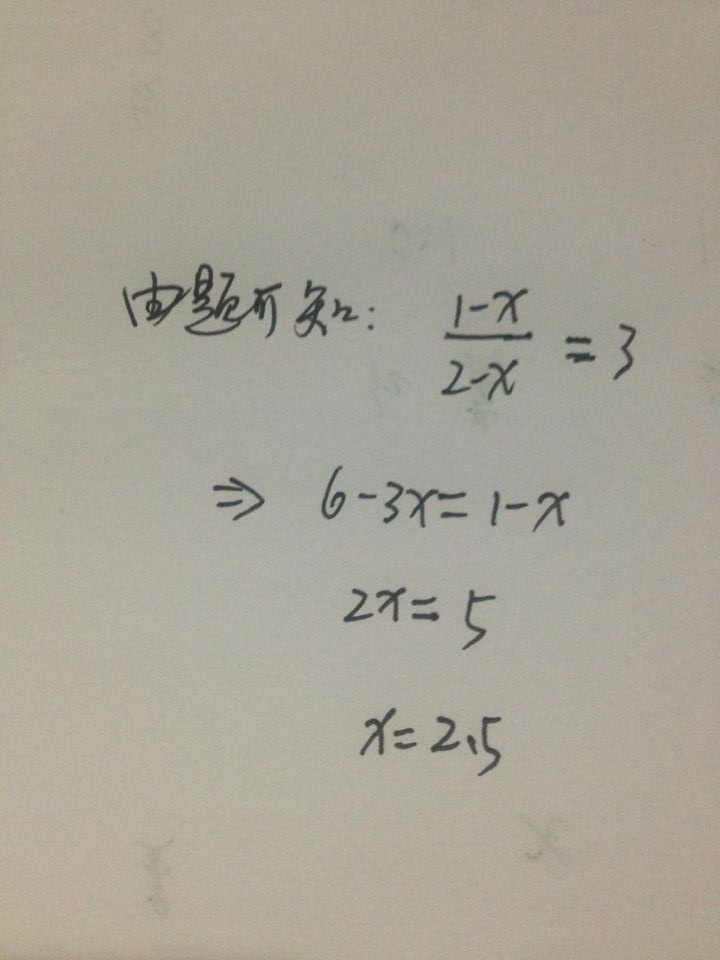 由题可知: \frac{1-x}{2-x} = 3
⇒ 6-3x=1-x
2x=5
x=2.5